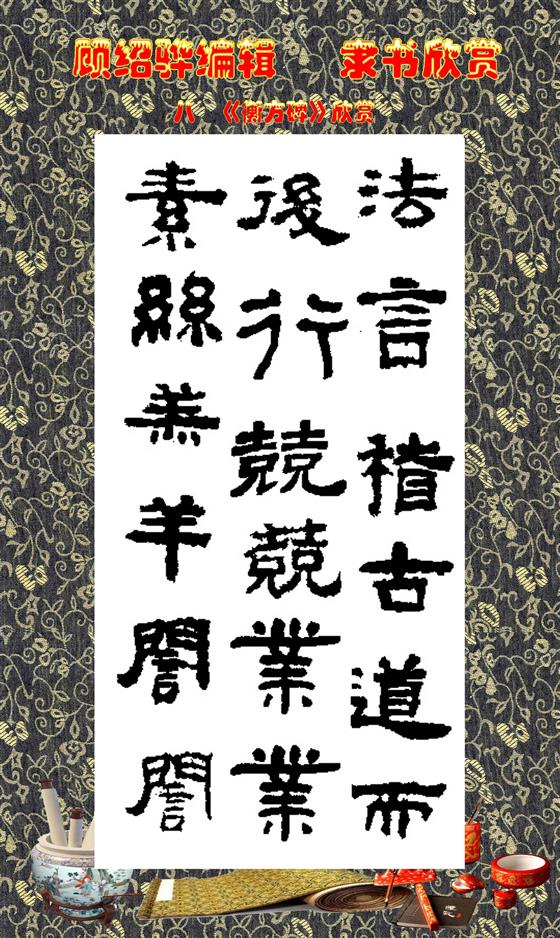 顾绍骅编辑 隶书欣赏
八 《衡方碑》欣赏
法言稽古道而
後行兢兢業業
素絲羔羊誾誾